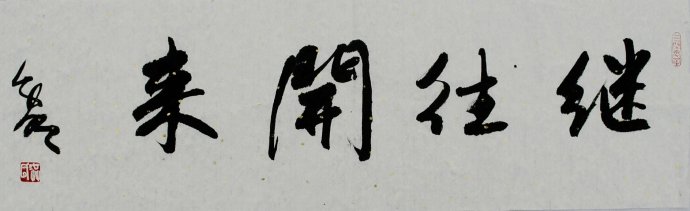 继往開来